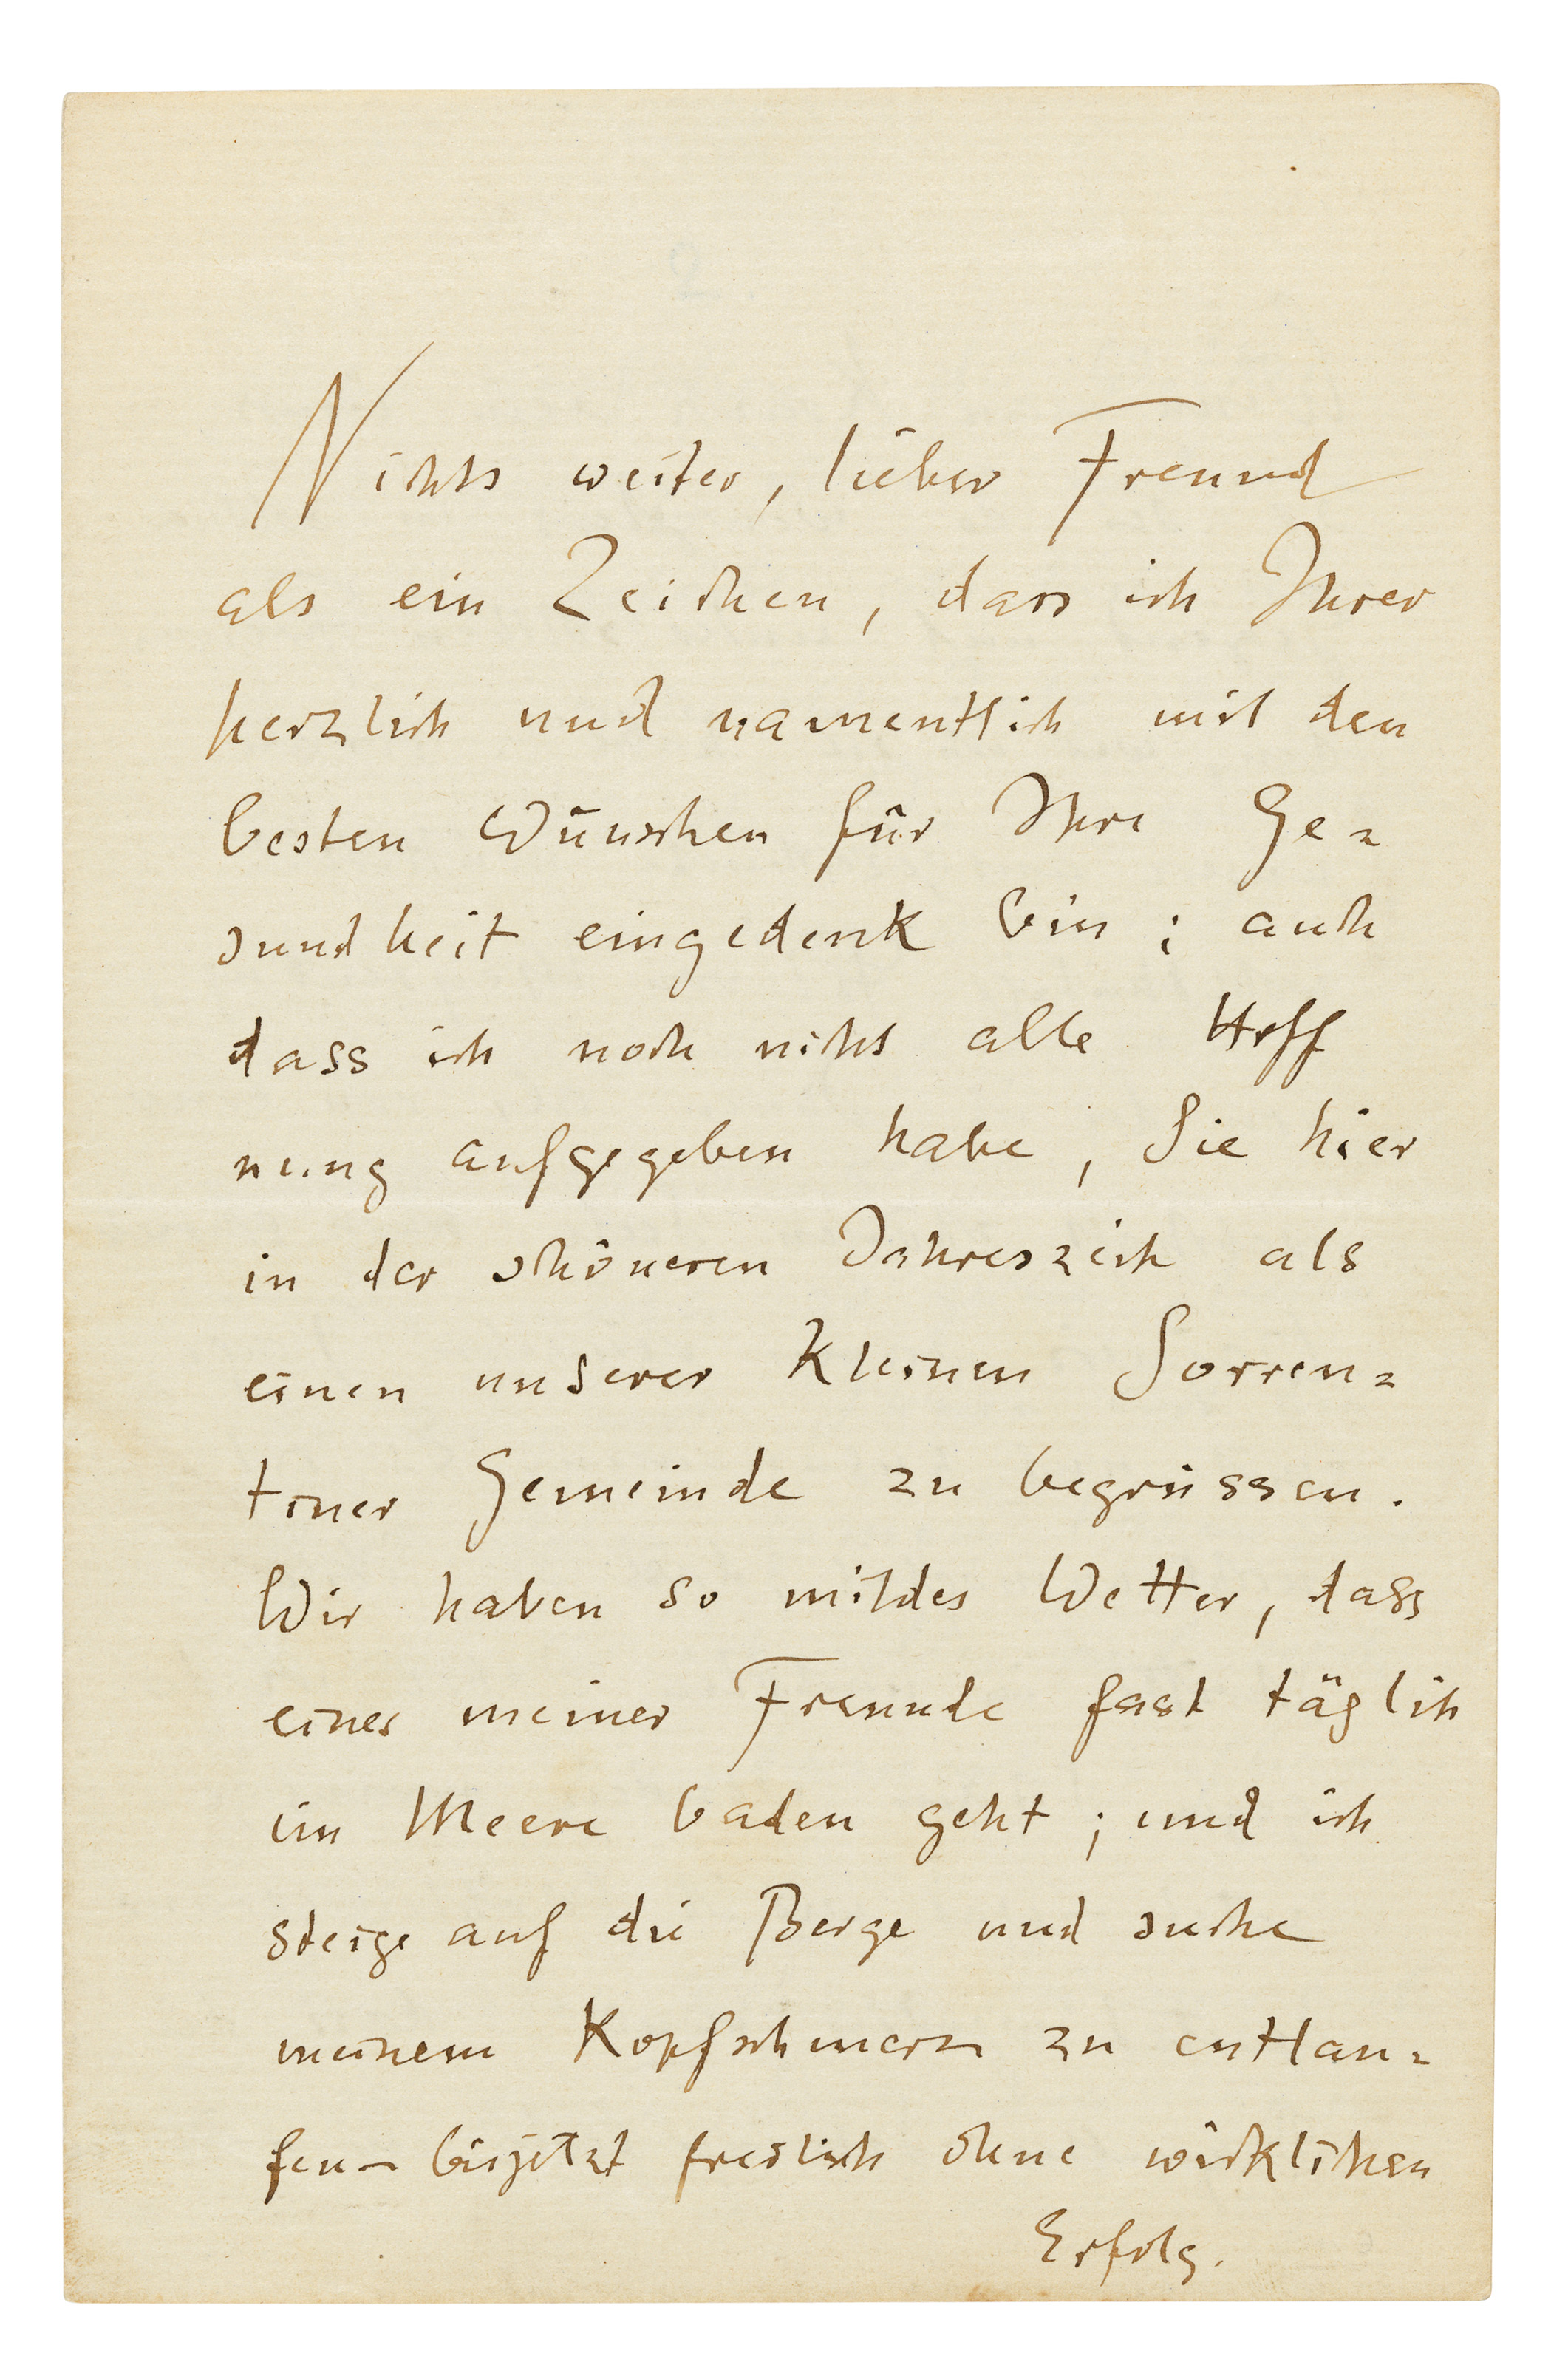 Nichts weiter, lieber Freund
als ein Zeichen, dass ich Ihrer
herzlich und namentlich mit den
besten Wünschen für Ihre Ge=
sundheit eingedenk bin; auch
dass ich noch nicht alle Hoff
nung aufgegeben habe, Sie hier
in der schöneren Jahreszeit als
einen unserer kleinen Sorren=
tiner Gemeinde zu begrüssen.
Wir haben so mildes Wetter, dass
einer meiner Freunde fast täglich
im Meere baden geht; und ich
steige auf die Berge und suche
meinem Kopfschmerz zu entlau=
fen – bisjetzt freilich ohne wirklichen
Erfolg.